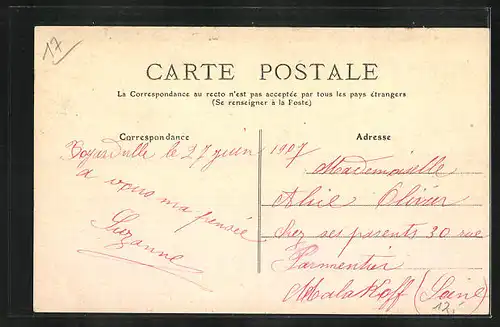 17
CARTE POSTALE
La Correspondance au recto n'est pas acceptée par tous les pays étrangers
(Se renseigner à la Poste)
Correspondance
Adresse
Boyardville le 27 juin 1907
à vous ma pensée
Suzanne
Mademoiselle
Alice Olivier
Chez ses parents 30 rue
Parmentier
Malakoff (Seine)
12.